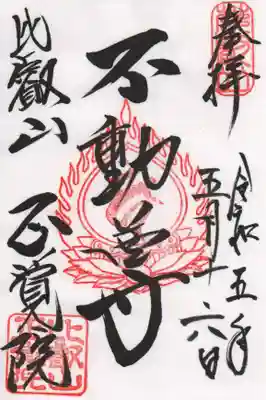 奉拝
令和五年
五月十六日
不動尊
比叡山 正覚院